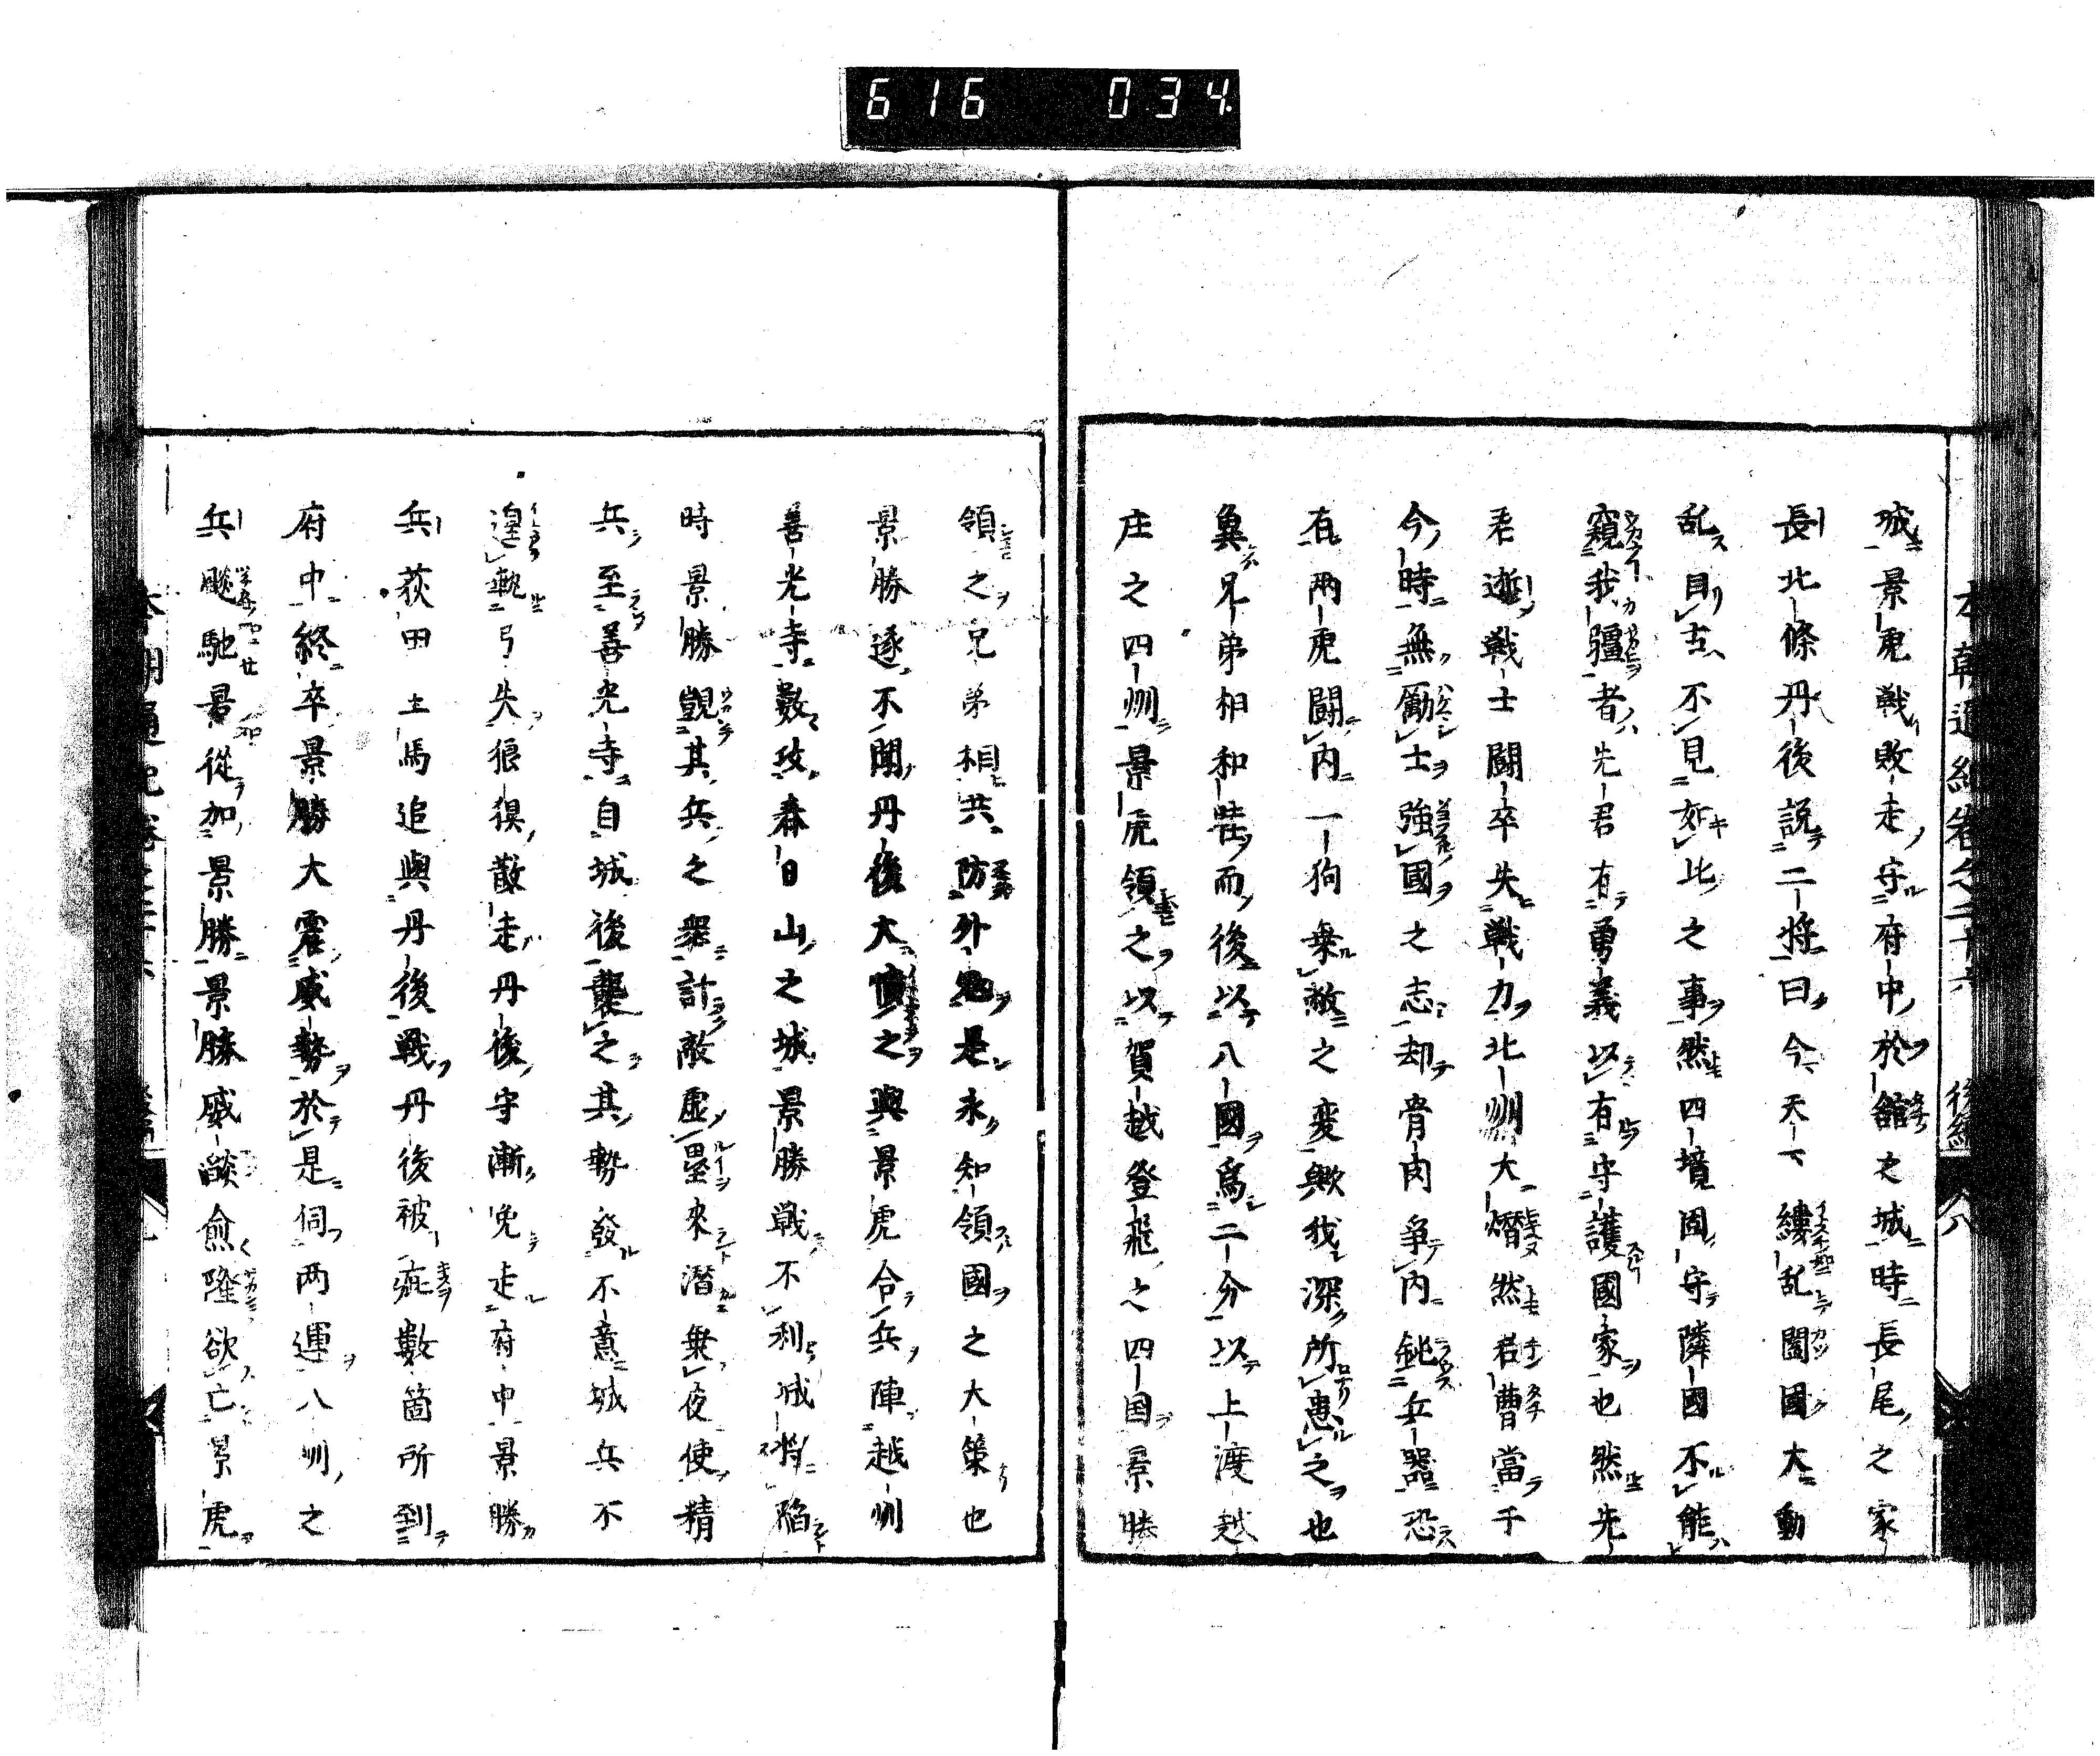 616 034
本朝通紀卷之二十六 後編 八
城景虎戦敗走守府中於舘之城時長尾之家
長北條丹後説二将曰今天下縷乱闔國大動
乱自古不見如此之事然四境固守隣國不能
窺我疆者先君有勇義以有守護國家也然先
君逝戦士闘卒失戦力北州大熸然君曹當干
今時無勵士強國之志却骨肉争内銚兵器恐
有兩虎闘内一狗乗敝之変歟我深所患之也
冀兄弟相和睦而後以八國爲二分以上渡越
庄之四州景虎領之以賀越登飛之四国景勝
領之兄弟相共防外寇是永知領國之大策也
景勝遂不聞丹後大憤之與景虎合兵陣越州
善光寺數攻春日山之城景勝戦不利城将陥
時景勝覬其兵之衆計敵虚塁來潜乗夜使精
兵至善光寺自城後襲之其勢發不意城兵不
遑執弓失狼狽散走丹後守漸免走府中景勝
兵荻田主馬追與丹後戦丹後被疵數箇所到
府中終卒景勝大震威勢於是伺两運八州之
兵飈馳景從加景勝景勝威燄愈隆欲亡景虎